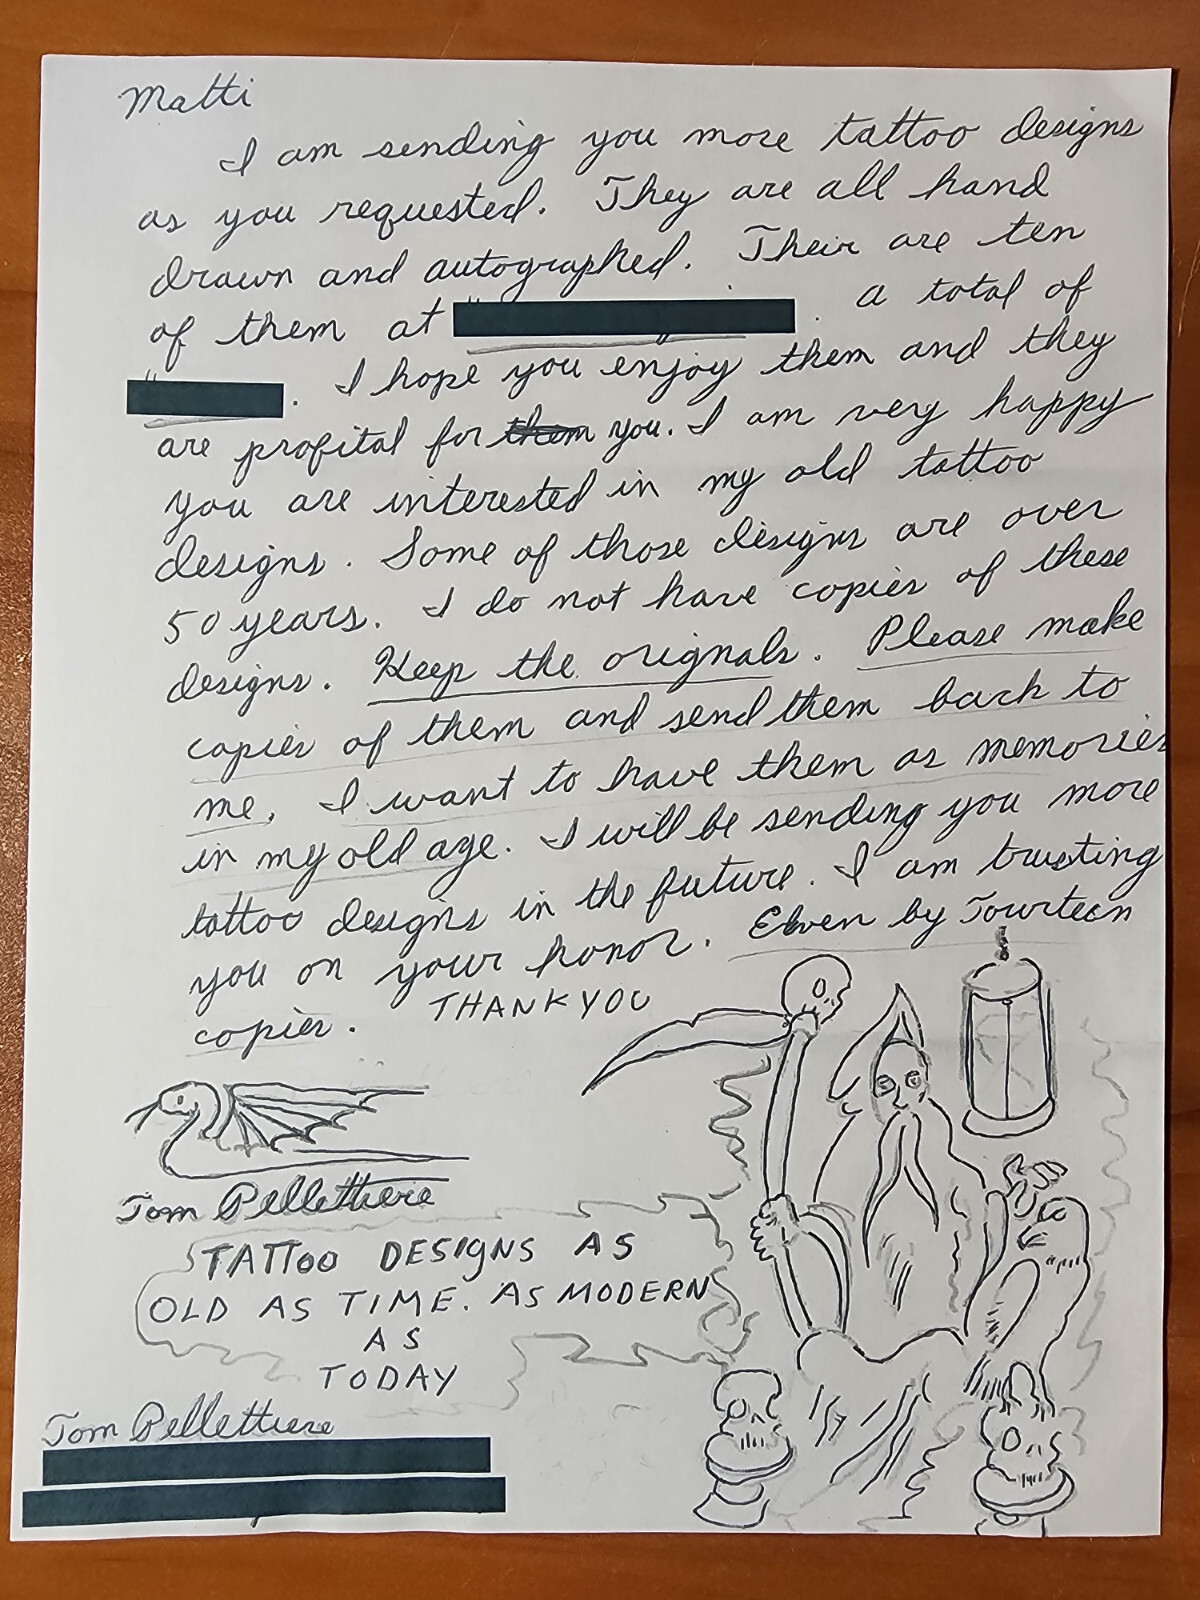 Matti
I am sending you more tattoo designs
as you requested. They are all hand
drawn and autographed. Their are ten
of them at . a total of
. I hope you enjoy them and they
are profital for them you. I am very happy
you are interested in my old tattoo
designs. Some of those designs are over
50 years. I do not have copies of these
designs. Keep the orignals. Please make
copies of them and send them back to
me, I want to have them as memories
in my old age. I will be sending you more
tattoo designs in the future. I am trusting
you on your honor. Elven by Fourteen
copies. THANK YOU
Tom Pellettiere
TATToo DESIGNS AS
OLD AS TIME. AS MODERN
AS
TODAY
Tom Pellettiere